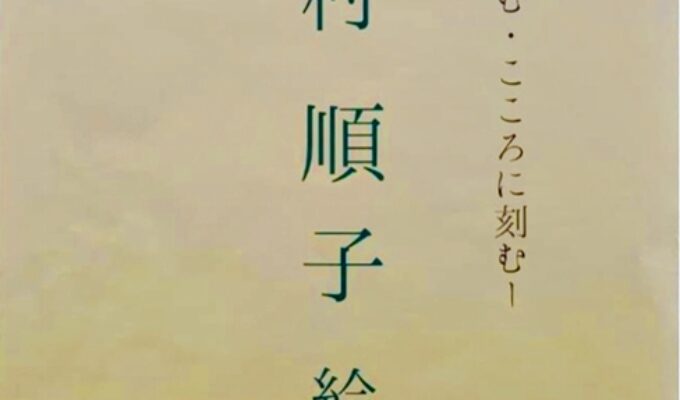 む・こころに刻むー
村順子絵